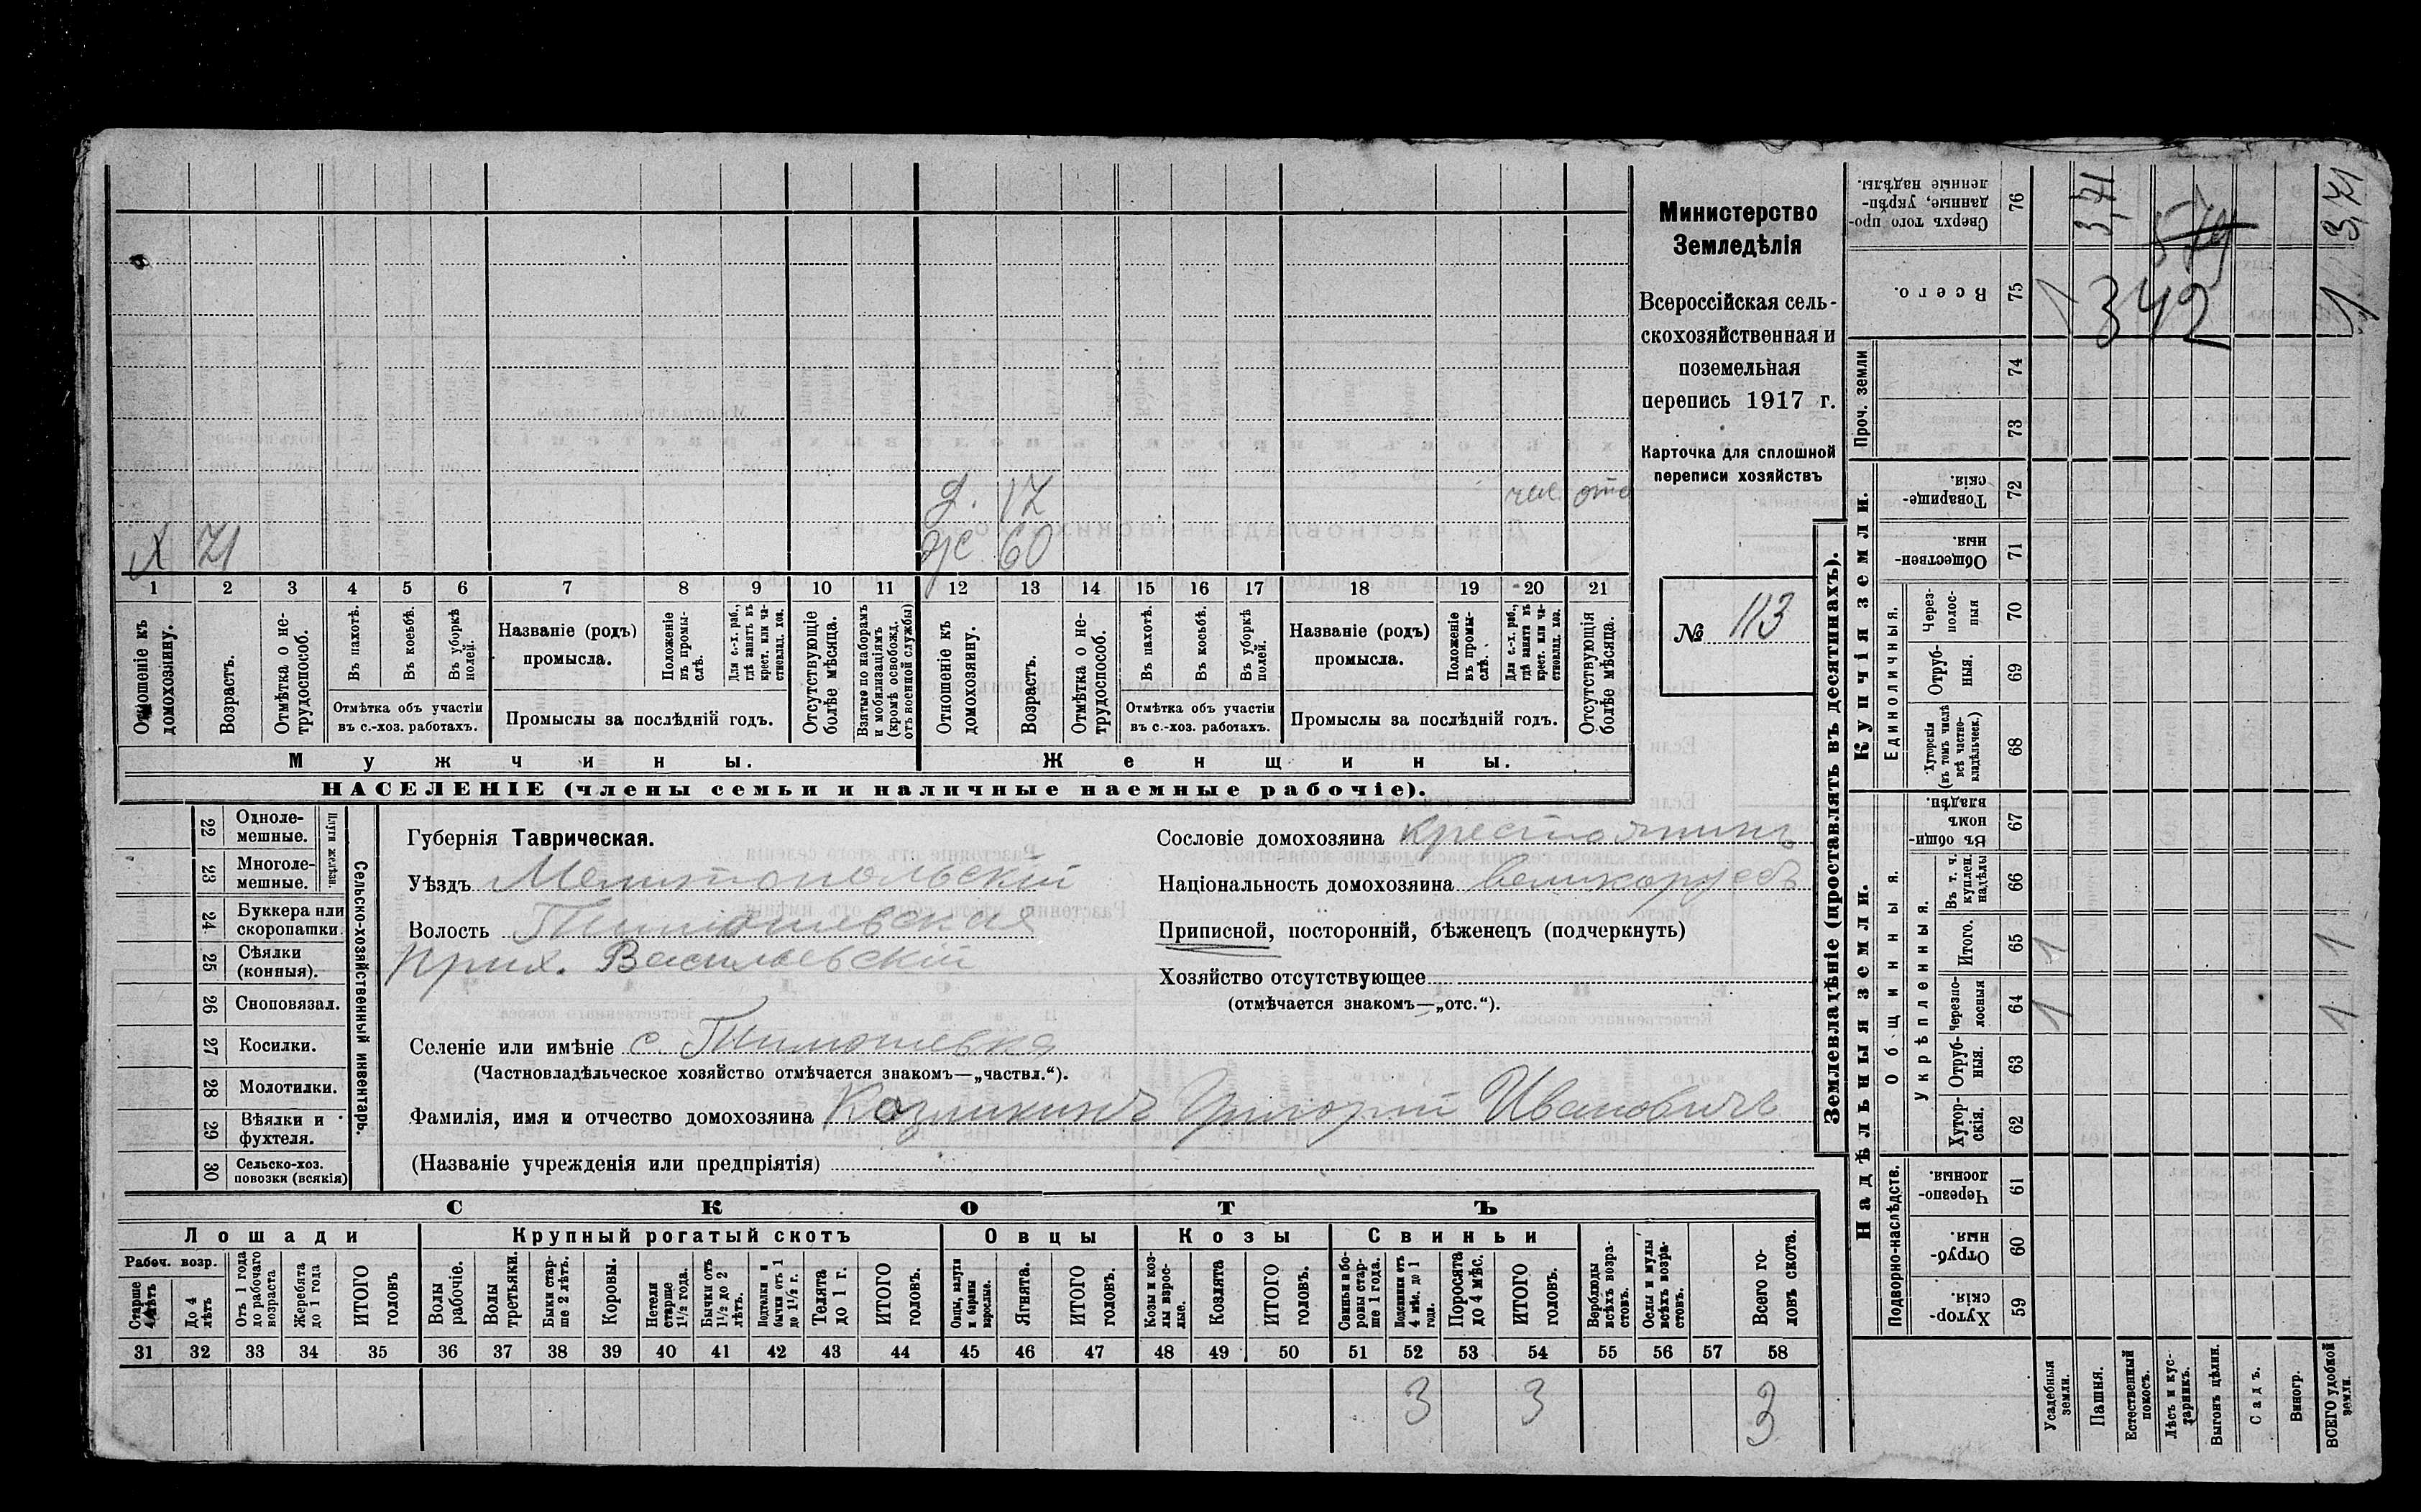 Министерство
Земледѣлія
Всероссійская сель-
скохозяйственная и
поземельная
перепись 1917 г.
Карточка для сплошной
переписи хозяйствъ
№ 113
д. 17 отс
Х 71 ж 60
1 2 3 4 5 6 7 8 9 10 11 12 13 14 15 16 17 18 19 20 21
Отношеніе къ домохозяину.
Возрастъ.
Отмѣтка о не-трудоспособ.
Въ пахотѣ.
Въ косьбѣ.
Въ уборкѣ полей.
Отмѣтка объ участіи
въ с.-хоз. работахъ.
Названіе (родъ)
промысла.
Положеніе въ промы-слѣ.
Для с.-х. раб., гдѣ занятъ въ крест. или ча-стновлад. хоз.
Промыслы за послѣдній годъ.
Отсутствующіе болѣе мѣсяца.
Взятые по наборамъ и мобилизаціямъ (кромѣ освобожд. отъ военной службы)
Отношеніе къ домохозяину.
Возрастъ.
Отмѣтка о не-трудоспособ.
Въ пахотѣ.
Въ косьбѣ.
Въ уборкѣ полей.
Отмѣтка объ участіи
въ с.-хоз. работахъ.
Названіе (родъ)
промысла.
Положеніе въ промы-слѣ.
Для с.-х. раб., гдѣ занята въ крест. или ча-стновлад. хоз.
Промыслы за послѣдній годъ.
Отсутствующія болѣе мѣсяца.
Мужчины. Женщины.
НАСЕЛЕНІЕ (члены семьи и наличные наемные рабочіе).
Сельско-хозяйственный инвентарь.
Плуги желѣзн.
22 Одноле-мешные.
23 Многоле-мешные.
24 Буккера или скоропашки
25 Сѣялки (конныя).
26 Сноповязал.
27 Косилки.
28 Молотилки.
29 Вѣялки и фухтеля.
30 Сельско-хоз. повозки (всякія)
Губернія Таврическая.
Уѣздъ Мелитопольскій
Волость Тимошевская
Прих. Васильевскій
Селеніе или имѣніе с. Тимошевка
(Частновладѣльческое хозяйство отмѣчается знакомъ—„частвл.“).
Фамилія, имя и отчество домохозяина Козликинъ Григорій Ивановичъ
(Названіе учрежденія или предпріятія)
Сословіе домохозяина крестьянинъ
Національность домохозяина великороссъ
Приписной, посторонній, бѣженецъ (подчеркнуть)
Хозяйство отсутствующее
(отмѣчается знакомъ—„отс.“).
СКОТЪ
Лошади Крупный рогатый скотъ Овцы Козы Свиньи
Рабоч. возр.
Старше 4 лѣтъ
До 4 лѣтъ
Отъ 1 года до рабочаго возраста
Жеребята до 1 года
ИТОГО головъ
Волы рабочіе.
Волы третьяки.
Быки стар-ше 2 лѣтъ.
Коровы.
Нетели старше 1½ года.
Бычки отъ 1½ до 2 лѣтъ.
Подтелки и бычки отъ 1 до 1½ г.
Телята до 1 г.
ИТОГО головъ.
Овцы, валухи и бараны взрослые.
Ягнята.
ИТОГО головъ.
Козы и коз-лы взрос-лые.
Козлята
ИТОГО головъ.
Свиньи и бо-ровы стар-ше 1 года.
Подсвинки отъ 4 мѣс. до 1 года.
Поросята до 4 мѣс.
ИТОГО головъ.
Верблюды всѣхъ возра-стовъ.
Ослы и мулы всѣхъ возра-стовъ.
Всего го-ловъ скота.
31 32 33 34 35 36 37 38 39 40 41 42 43 44 45 46 47 48 49 50 51 52 53 54 55 56 57 58
3 3 3
Землевладѣніе (проставлять въ десятинахъ).
Надѣльныя земли. Купчія земли.
Проч. земли
Подворно-наслѣдств.
Общинныя.
Укрѣпленныя.
Единоличныя.
76 Сверхъ того про-данные, укрѣп-ленные надѣлы. 3,71 3,71
75 Всего. 1 342 1
74
73
72 Товарище-скія.
71 Обществен-ныя.
70 Через-полос-ныя
69 Отруб-ныя.
68 Хуторскія (въ томъ числѣ всѣ частно-владѣльческ.)
67 Въ общи-номъ владѣн.
66 Въ т. ч. куплен. надѣлы
65 Итого. 1 1
64 Черезпо-лосныя 1 1
63 Отруб-ныя.
62 Хутор-скія.
61 Черезпо-лосныя.
60 Отруб-ныя.
59 Хутор-скія.
Усадебныя земли.
Пашня.
Естественный покосъ.
Лѣсъ и кус-тарникъ.
Выгонъ цѣлин.
Садъ.
Виногр.
ВСЕГО удобной земли.